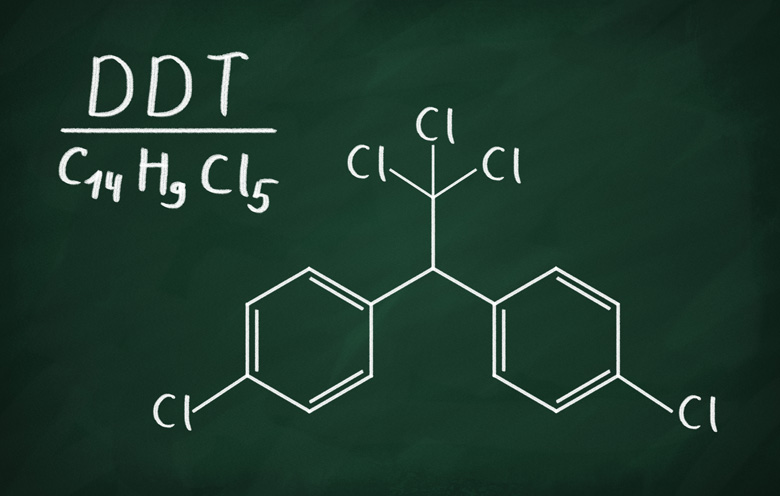 DDT
C₁₄H₉Cl₅
Cl
Cl Cl
Cl Cl